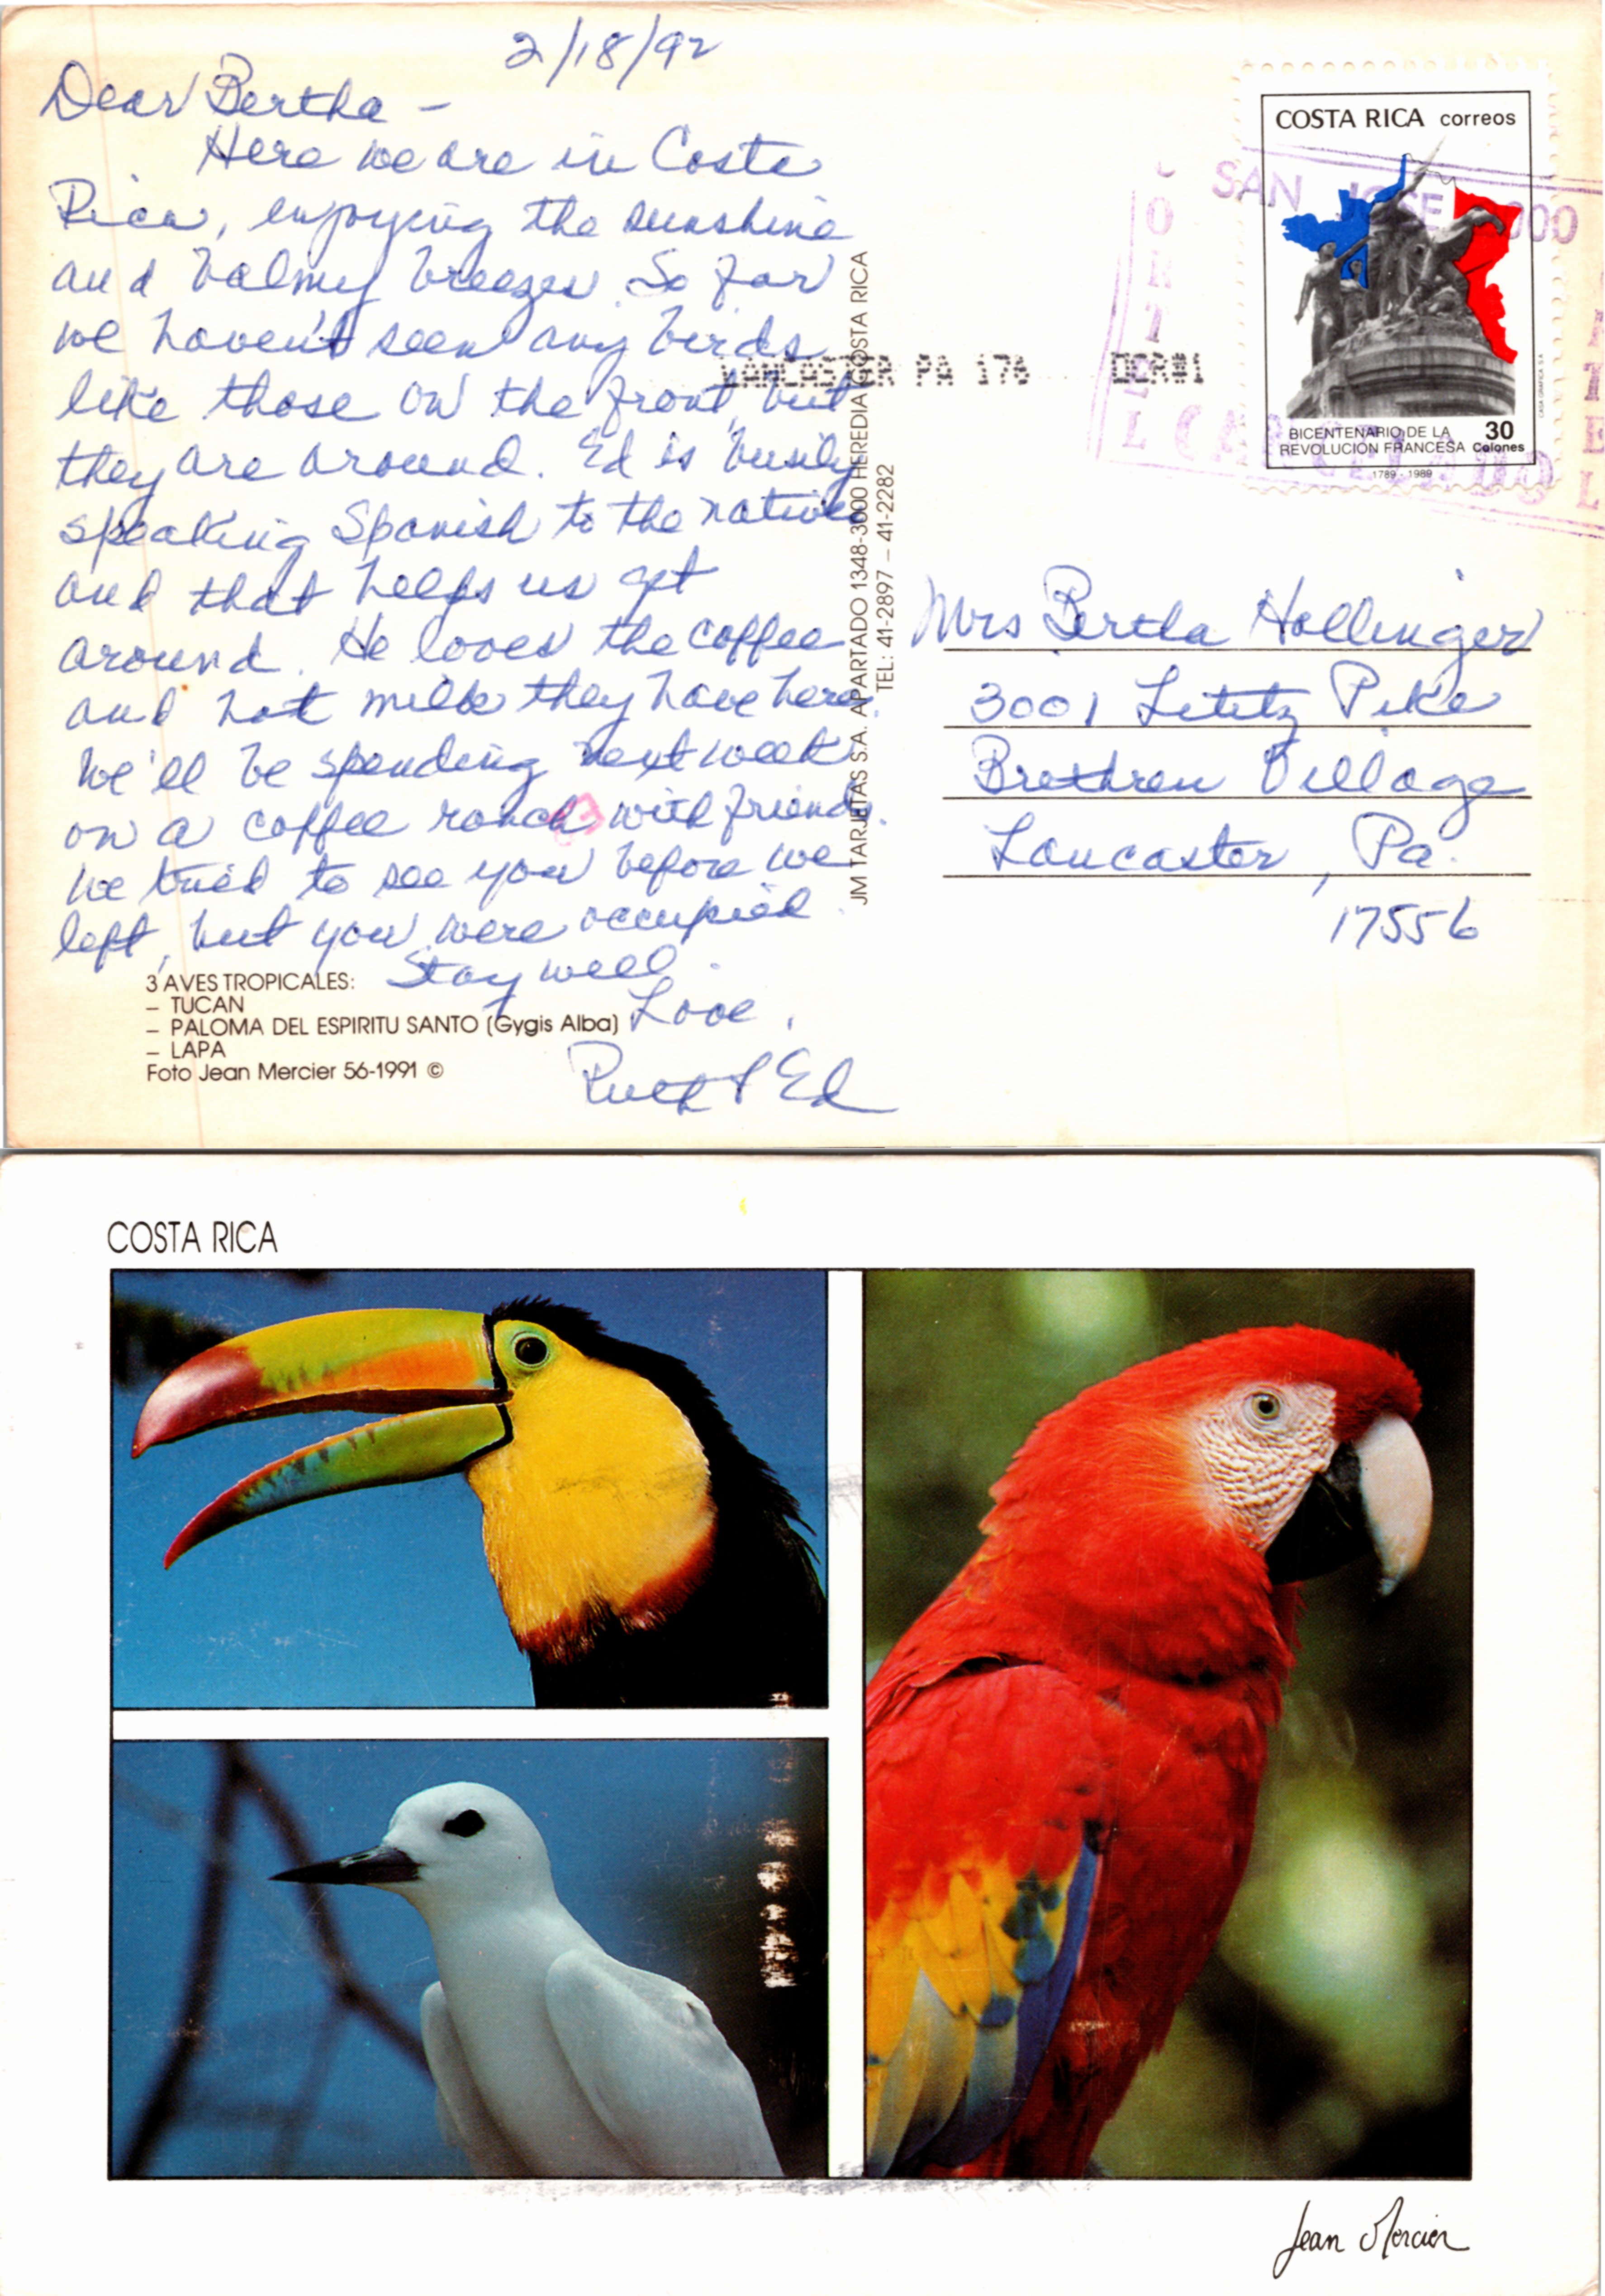 2/18/92
Dear Bertha -
Here we are in Costa
Rica, enjoying the sunshine
and balmy breezes. So far
we haven't seen any birds
like those on the front, but
they are around. Ed is busily
speaking Spanish to the natives
and that helps us get
around. He loves the coffee
and hot milk they have here.
We'll be spending next week
on a coffee ranch with friends.
We tried to see you before we
left, but you were occupied.
Stay well.
Love,
Ruth & Ed
3 AVES TROPICALES:
– TUCAN
– PALOMA DEL ESPIRITU SANTO (Gygis Alba)
– LAPA
Foto Jean Mercier 56-1991 ©
JM TARJETAS S.A. APARTADO 1348-3000 HEREDIA COSTA RICA
TEL: 41-2897 – 41-2282
LANCASTER PA 176 OCR#1
COSTA RICA correos
BICENTENARIO DE LA
REVOLUCION FRANCESA
30
Colones
1789 - 1989
CASA GRAFICA S.A.
SAN JOSE 1000
CANCELADO
Mrs Bertha Hollinger
3001 Lititz Pike
Brethren Village
Lancaster, Pa.
17556
COSTA RICA
Jean Mercier